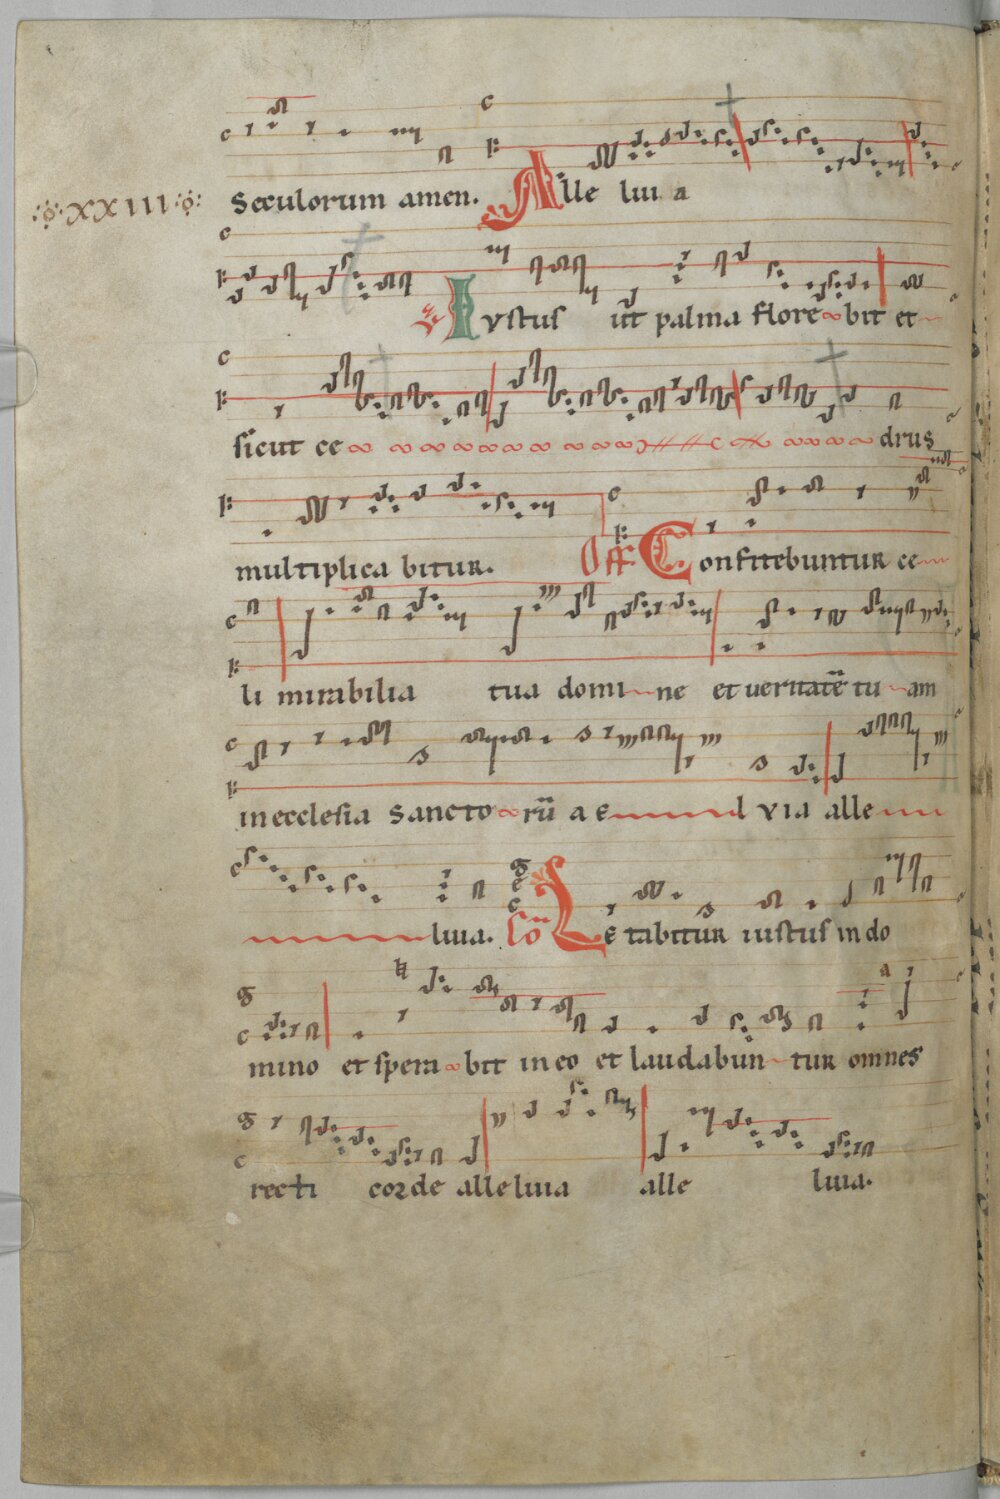 XXIII
Seculorum amen. Alle luı a
℣ Iustus ut palma flore bit et
sicut ce drus
multiplica bitur. Off Confitebuntur ce
li mirabilia tua domi ne et ueritatē tu am
in ecclesia sancto rū a e uia alle
luia. Cō Letabitur iustus in do
mino et spera bit in eo et laudabun tur omnes
recti corde alleluia alle luia.